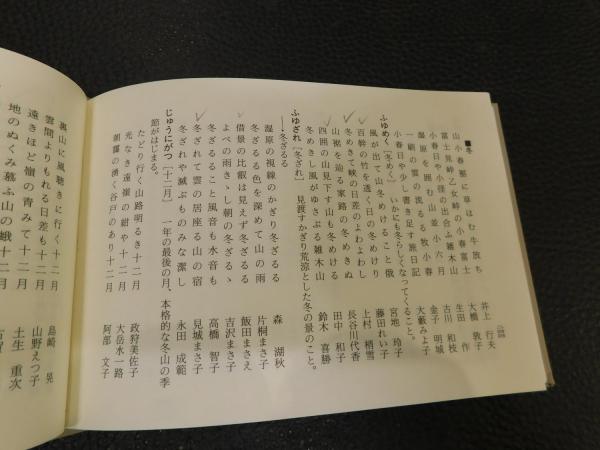 ■冬
山小春塞に草はむ牛放ち 井上 行夫
富士見峠乙女峠の小春富士 大橋 敦子
小春日や小径の出合ふ雑木山 生田 作
湿原を囲む山並小六月 古川 和枝
一刷の雲の流るる牧小春 金子 明城
小春日や少し書き足す旅日記 大藪みよ子
ふゆめく［冬めく］ いかにも冬らしくなってくること。
風が出て山冬めけること俄 宮地 玲子
百幹の竹を透く日の冬めけり 藤田れい子
冬めきて峡の日差のよわよわし 上村 梢雪
山裾を辿る家路の冬めきぬ 長谷川代香
四囲の山見下す山も冬めける 田中 和子
冬めきし風がゆさぶる雑木山 鈴木 喜勝
ふゆざれ［冬ざれ］ 見渡すかぎり荒涼とした冬の景のこと。
―冬ざるる
湿原の視線のかぎり冬ざるる 森 湖秋
冬ざるる色を深めて山の雨 片桐まさ子
借景の比叡は見えず冬ざるる 飯田まさえ
よべの雨きゝし朝の冬ざるゝ 吉沢まさ子
冬ざるること風音も水音も 高橋 智子
冬ざれて雲の居座る山の宿 見城まさ子
冬ざれや滅ぶものみな潔し 永田 成範
じゅうにがつ［十二月］ 一年の最後の月。本格的な冬山の季
節がはじまる。
たどり行く山路明るき十二月 政狩美佐子
光なき遠嶺の紺や十二月 大岳水一路
朝靄の湧く谷戸のあり十二月 阿部 文子
裏山に風聴きに行く十二月 島崎 晃
雲間よりもれる日差も十二月 山野えつ子
遠きほど嶺の青みて十二月 土生 重次
地のぬくみ慕ふ山の蛾十二月